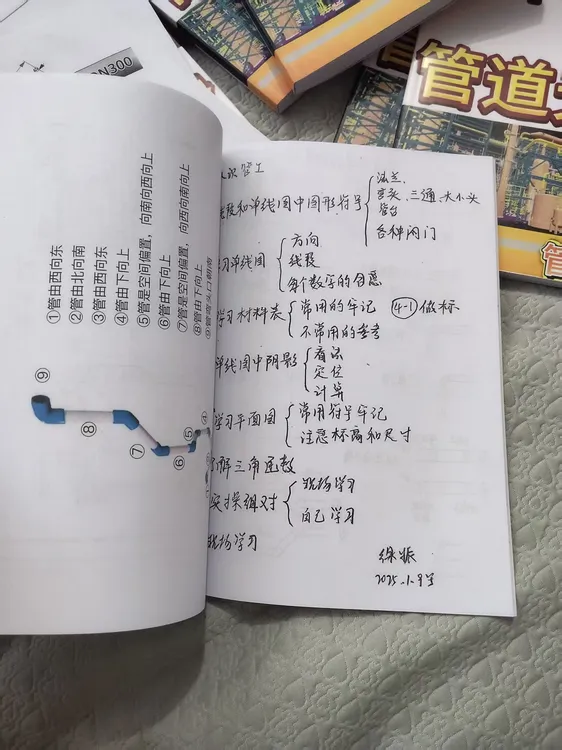 DN300
管道
管
①管由西向东
②管由北向南
③管由西向东
④管由下向上
⑤管是空间偏置，向南向西向上
⑥管由下向上
⑦管是空间偏置，向西向南向上
⑧管由下向上
⑨管弯头口朝南
⑨
⑧
⑦
⑥
⑤
④
认识管工
线段和单线图中图形.符号
法兰.
弯头.三通.大小头
管台
各种阀门
学习单线图
方向
线段
每个数字的含意
学习材料表
常用的牢记 ④-1 做标
不常用的参考
单线图中阴影
看法
定位
计算
学习平面图
常用符号牢记
注意标高和尺寸
了解三角函数
实操组对
现场学习
自己学习
现场学习
徐振
2025.1.9